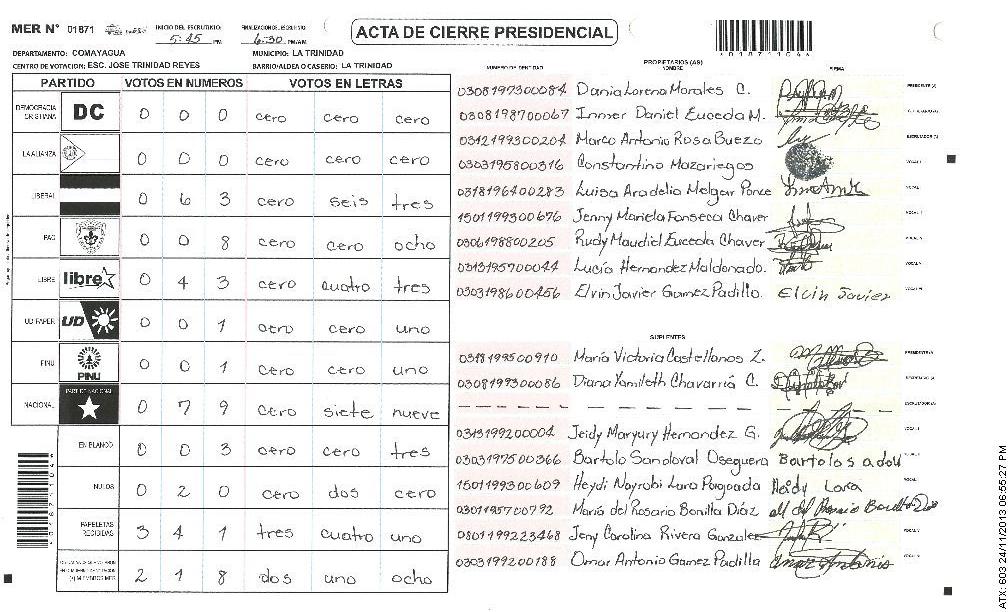 MER N° 01871 INICIO DEL ESCRUTINIO: 5:45 PM FINALIZACION DEL ESCRUTINIO 6:30 PM/AM
ACTA DE CIERRE PRESIDENCIAL
DEPARTAMENTO: COMAYAGUA MUNICIPIO: LA TRINIDAD
CENTRO DE VOTACION: ESC. JOSE TRINIDAD REYES BARRIO/ALDEA O CASERIO: LA TRINIDAD
PARTIDO VOTOS EN NUMEROS VOTOS EN LETRAS
DEMOCRACIA CRISTIANA DC 0 0 0 cero cero cero
LA ALIANZA 0 0 0 cero cero cero
LIBERAL 0 6 3 cero seis tres
PAC 0 0 8 cero cero ocho
LIBRE libre 0 4 3 cero cuatro tres
UD FAPER UD 0 0 1 cero cero uno
PINU PINU 0 0 1 cero cero uno
NACIONAL PARTIDO NACIONAL 0 7 9 cero siete nueve
EN BLANCO 0 0 3 cero cero tres
NULOS 0 2 0 cero dos cero
PAPELETAS RECIBIDAS 3 4 1 tres cuatro uno
(+) MIEMBROS MER 2 1 8 dos uno ocho
PROPIETARIOS (AS)
NUMERO DE IDENTIDAD NOMBRE FIRMA
0308197300084 Dania Lorena Morales C. PRESIDENTE (A)
0308198700067 Inmer Daniel Euceda M.
0312199300204 Marco Antonio Rosa Buezo ESCRUTADOR (A)
0303195800316 Constantino Mazariegos VOCAL I
0318196400283 Luisa Aradelia Melgar Ponce VOCAL
1501199300676 Jenny Mariela Fonseca Chaver VOCAL
0306198800205 Rudy Maudiel Euceda Chaver VOCAL
0313195700044 Lucía Hernandez Maldonado. VOCAL
0303198600456 Elvin Javier Gamez Padilla. Elvin Javier VOCAL
SUPLENTES
0318199500910 María Victoria Castellanos Z. PRESIDENTE (A)
0308199300086 Diana Yamileth Chavarría C. SECRETARIO (A)
ESCRUTADOR (A)
0313199200004 Jeidy Maryury Hernandez G. VOCAL I
0303197500366 Bartolo Sandoval Oseguera VOCAL
1501199300609 Heydi Nayrobi Lara Heidy Lara VOCAL
0301195700792 María del Rosario Bonilla Díaz VOCAL
0801199223468 Jeny Carolina Rivera Gonzalez VOCAL
0303199200188 Omar Antonio Gamez Padilla Omar Antonio VOCAL
ATX: 603 24/11/2013 06:55:27 PM